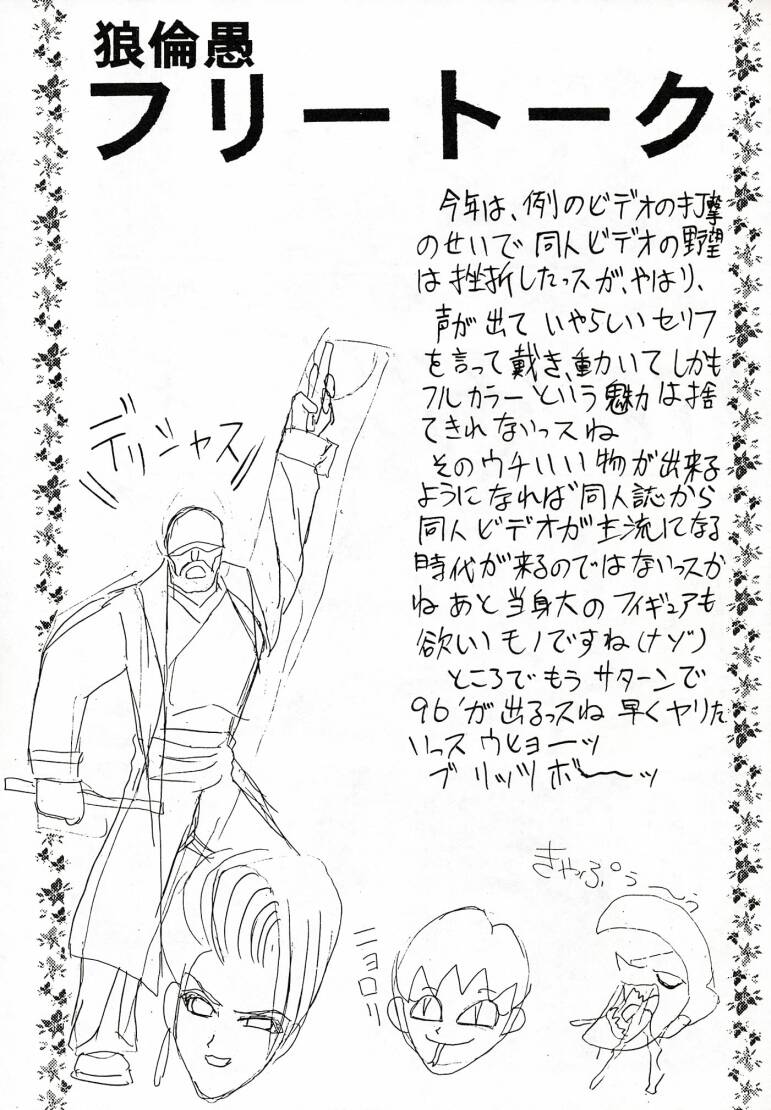 狼倫愚
フリートーク
今年は、例のビデオの打撃
のせいで同人ビデオの野望
は挫折したっスが、やはり、
声が出ていやらしいセリフ
を言って戴き、動いてしかも
フルカラーという魅力は捨
てきれないっスね
そのウチいい物が出来る
ようになれば同人誌から
同人ビデオが主流になる
時代が来るのではないっスか
ねあと当身大のフィギュアも
欲しいモノですね(ナゾ)
ところでもうサターンで
96'が出るっスね早くヤリた
いっスウヒョーッ
ブリッツボーーッ
デリシャス
きゃふ゜ぅ〜ぅ
ニョロリ